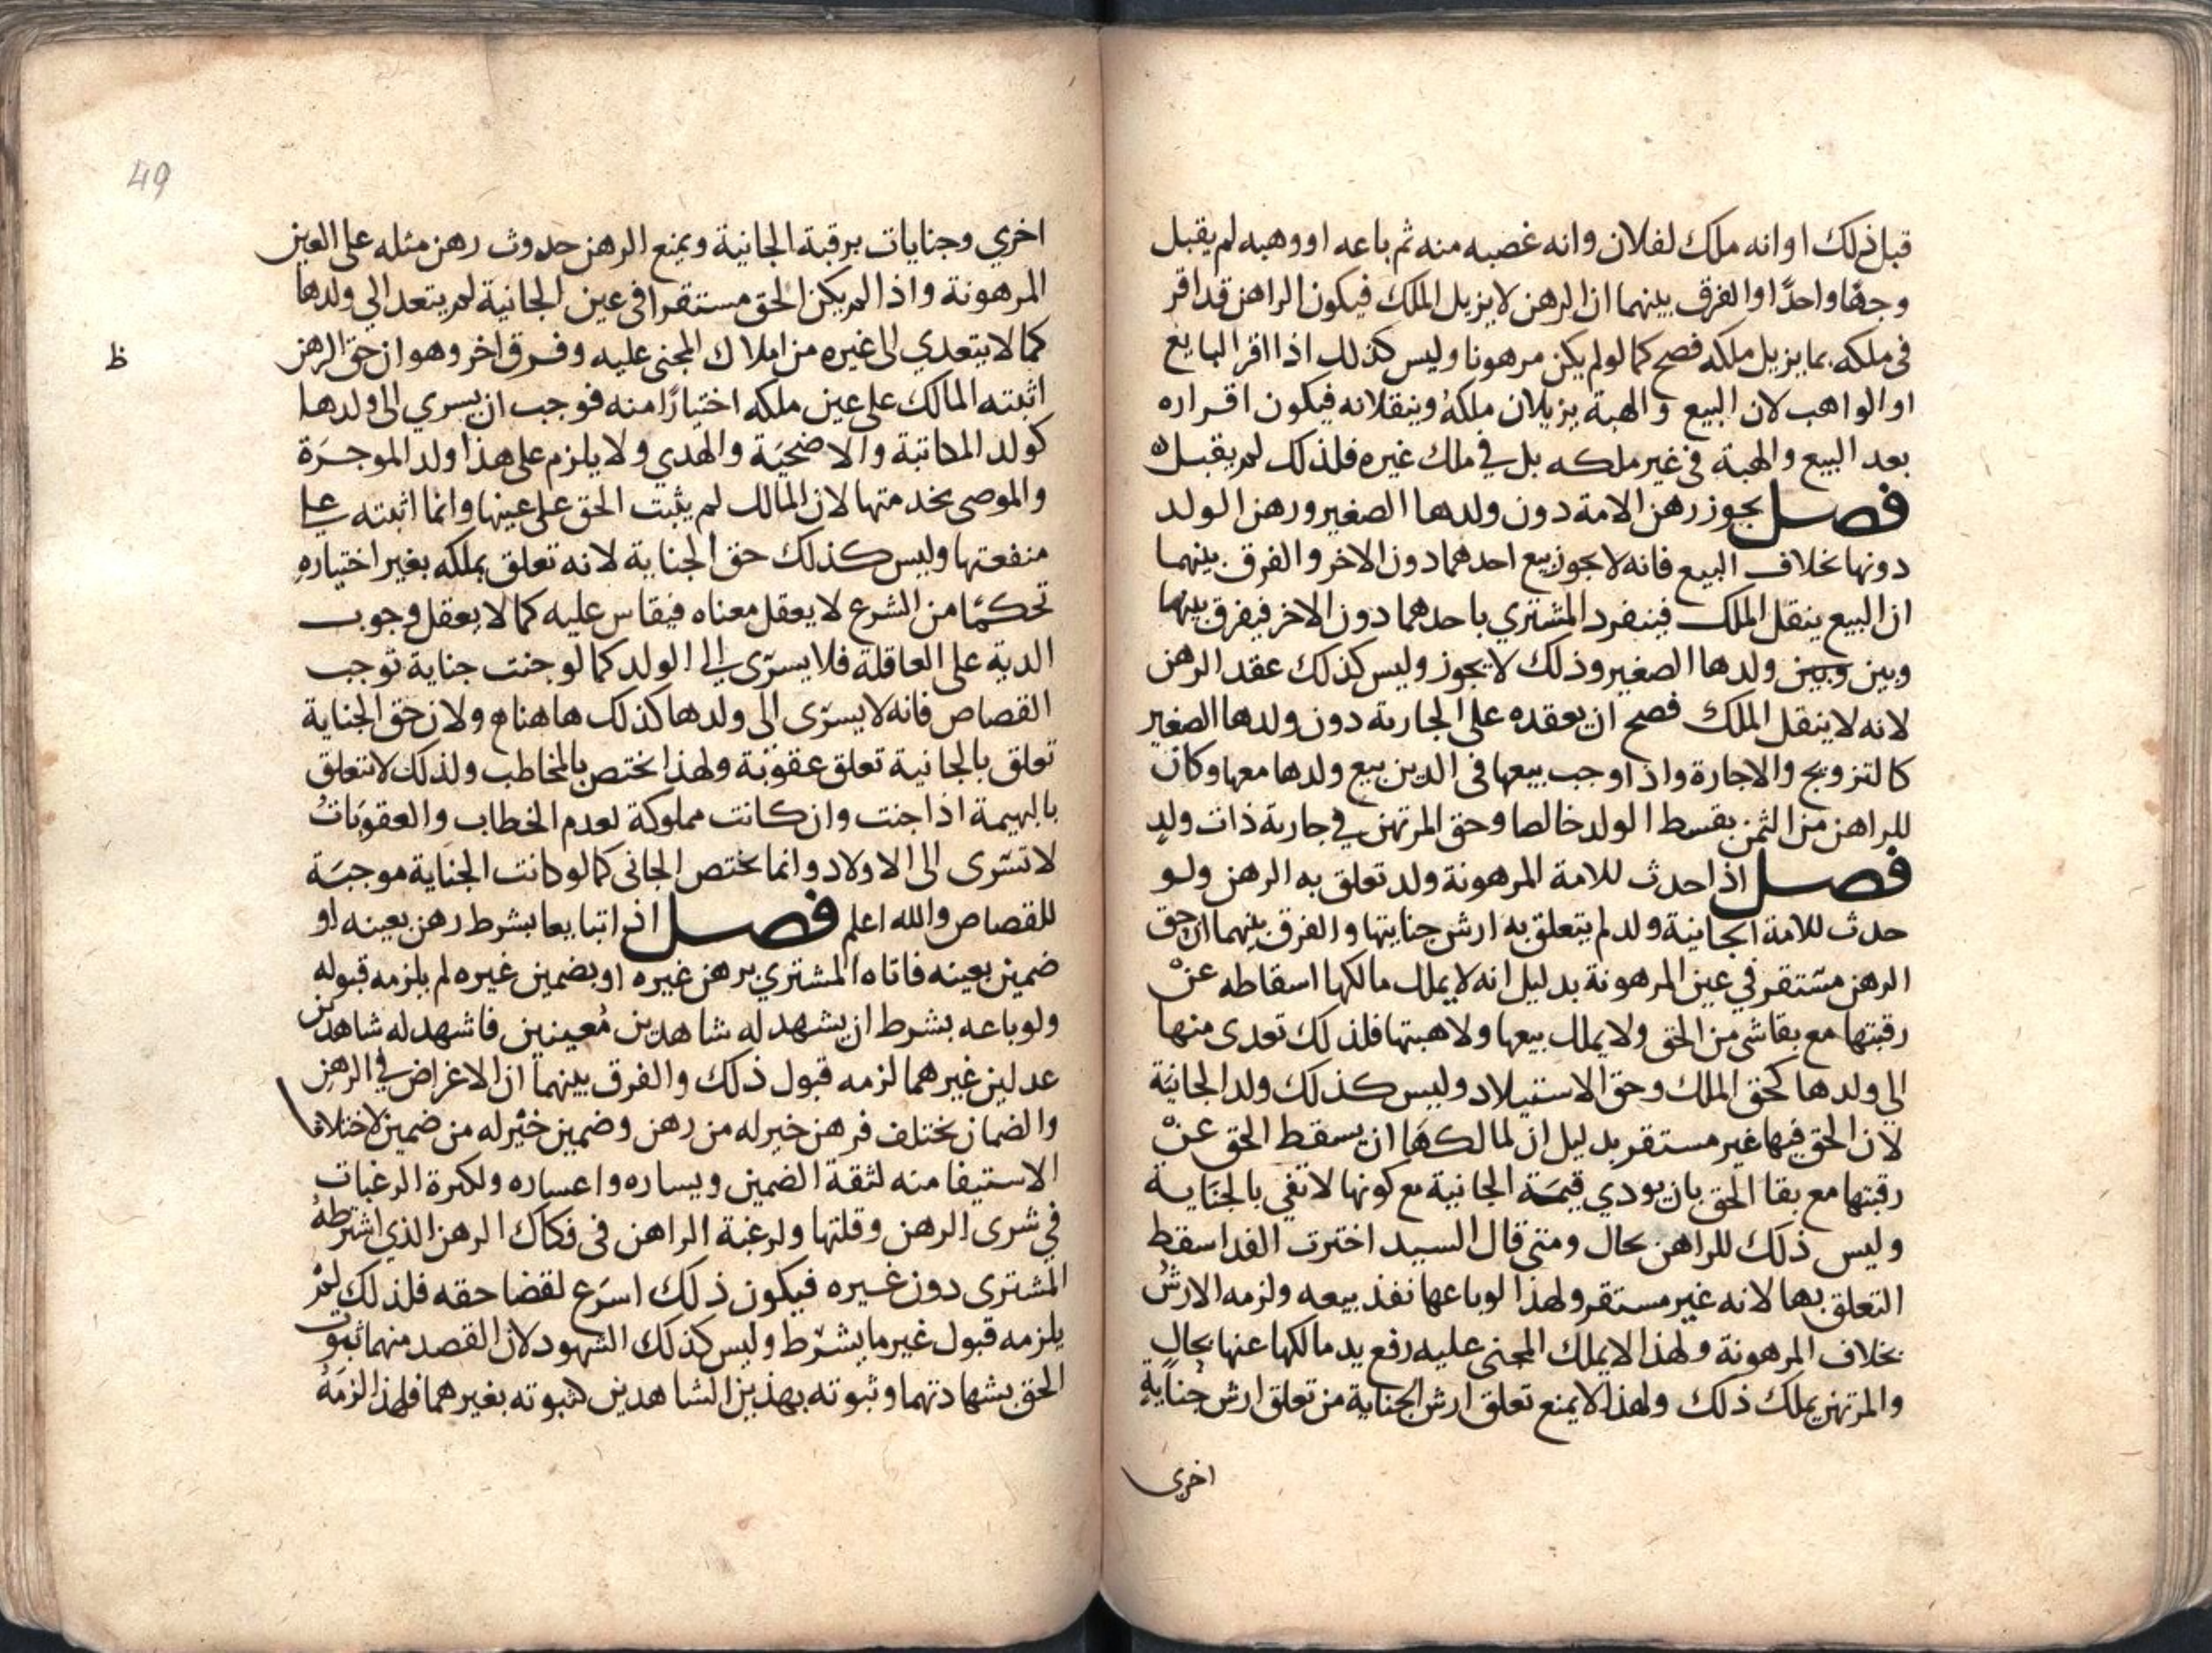 قبل ذلك او انه ملك لفلان وانه غصبه منه ثم باعه او وهبه لم يقبل
وجها واحدا والفرق بينهما ان الرهن لا يزيل الملك فيكون الراهن قد اقر
في ملكه بما يزيل ملكه فصح كما لو لم يكن مرهونا وليس كذلك اذا اقر البايع
او الواهب لان البيع والهبة يزيلان ملكه وينقلانه فيكون اقراره
بعد البيع والهبة في غير ملكه بل في ملك غيره فلذلك لم يقبل
فصل يجوز رهن الامة دون ولدها الصغير ورهن الولد
دونها بخلاف البيع فانه لا يجوز بيع احدهما دون الاخر والفرق بينهما
ان البيع ينقل الملك فينفرد المشتري باحدهما دون الاخر فيفرق بينها
وبين وبين ولدها الصغير وذلك لا يجوز وليس كذلك عقد الرهن
لانه لا ينقل الملك فصح ان يعقده على الجارية دون ولدها الصغير
كالتزويج والاجارة واذا وجب بيعها في الدين بيع ولدها معها وكان
للراهن من الثمن بقسط الولد خالصا وحق المرتهن في جارية ذات ولد
فصل اذا حدث للامة المرهونة ولد تعلق به الرهن ولو
حدث للامة الجانية ولد لم يتعلق به ارش جنايتها والفرق بينهما ان حق
الرهن مستقر في عين المرهونة بدليل انه لا يملك مالكها اسقاطه عن
رقبتها مع بقا شي من الحق ولا يملك بيعها ولا هبتها فلذلك تعدى منها
الي ولدها كحق الملك وحق الاستيلاد وليس كذلك ولد الجانية
لان الحق فيها غير مستقر بدليل ان لمالكها ان يسقط الحق عن
رقبتها مع بقا الحق بان يودي قيمة الجانية مع كونها لا تفي بالجناية
وليس ذلك للراهن بحال ومتى قال السيد اخترت الفدا سقط
التعلق بها لانه غير مستقر ولهذا لو باعها نفذ بيعه ولزمه الارش
بخلاف المرهونة ولهذا لا يملك المجنى عليه رفع يد مالكها عنها بحال
والمرتهن يملك ذلك ولهذا لا يمنع تعلق ارش الجناية من تعلق ارش جناية
اخرى
49
اخري وجنايات برقبة الجانية ويمنع الرهن حدوث رهن مثله على العين
المرهونة واذا لم يكن الحق مستقرا في عين الجانية لم يتعد الي ولدها
كما لا يتعدي الى غيره من املاك المجنى عليه وفرق اخر وهو ان حق الرهن
ظ
اثبته المالك على عين ملكه اختيارا منه فوجب ان يسري الى ولدها
كولد المكاتبة والاضحية والهدي ولا يلزم على هذا ولد الموجرة
والموصى بخدمتها لان المالك لم يثبت الحق على عينها وانما اثبته على
منفعتها وليس كذلك حق الجناية لانه تعلق بملكه بغير اختياره
تحكما من الشرع لا يعقل معناه فيقاس عليه كما لا يعقل وجوب
الدية على العاقلة فلا يسرى الى الولد كما لو جنت جناية توجب
القصاص فانه لا يسرى الى ولدها كذلك هاهنا ولان حق الجناية
تعلق بالجانية تعلق عقوبة ولهذا يختص بالمخاطب ولذلك لا تتعلق
بالبهيمة اذا جنت وان كانت مملوكة لعدم الخطاب والعقوبات
لا تسرى الى الاولاد وانما يختص الجاني كما لو كانت الجناية موجبة
للقصاص والله اعلم فصل اذا تبايعا بشرط رهن بعينه او
ضمين بعينه فاتاه المشتري برهن غيره او بضمين غيره لم يلزمه قبوله
ولو باعه بشرط ان يشهد له شاهدين معينين فاشهد له شاهدين
عدلين غيرهما لزمه قبول ذلك والفرق بينهما ان الاغراض في الرهن
والضمان تختلف فرهن خير له من رهن وضمين خير له من ضمين لاختلاف
الاستيفا منه لثقة الضمين ويساره واعساره ولكثرة الرغبات
في شرى الرهن وقلتها ولرغبة الراهن في فكاك الرهن الذي اشترطه
المشترى دون غيره فيكون ذلك اسرع لقضا حقه فلذلك لم
يلزمه قبول غير ما يشرط وليس كذلك الشهود لان القصد منهما ثبوت
الحق بشهادتهما وثبوته بهذين الشاهدين كثبوته بغيرهما فلهذا لزمه